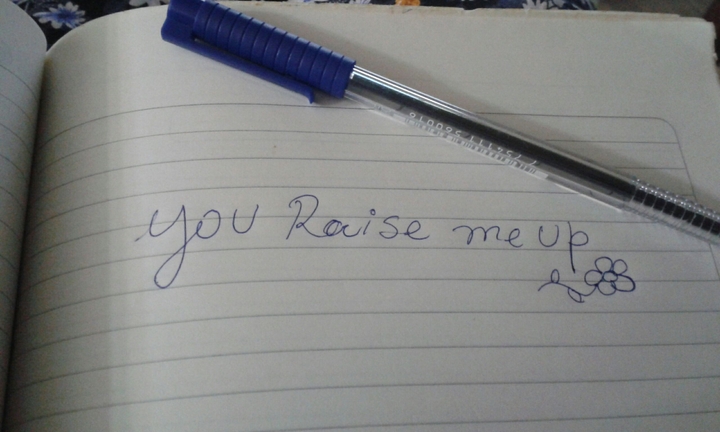 you Raise me up